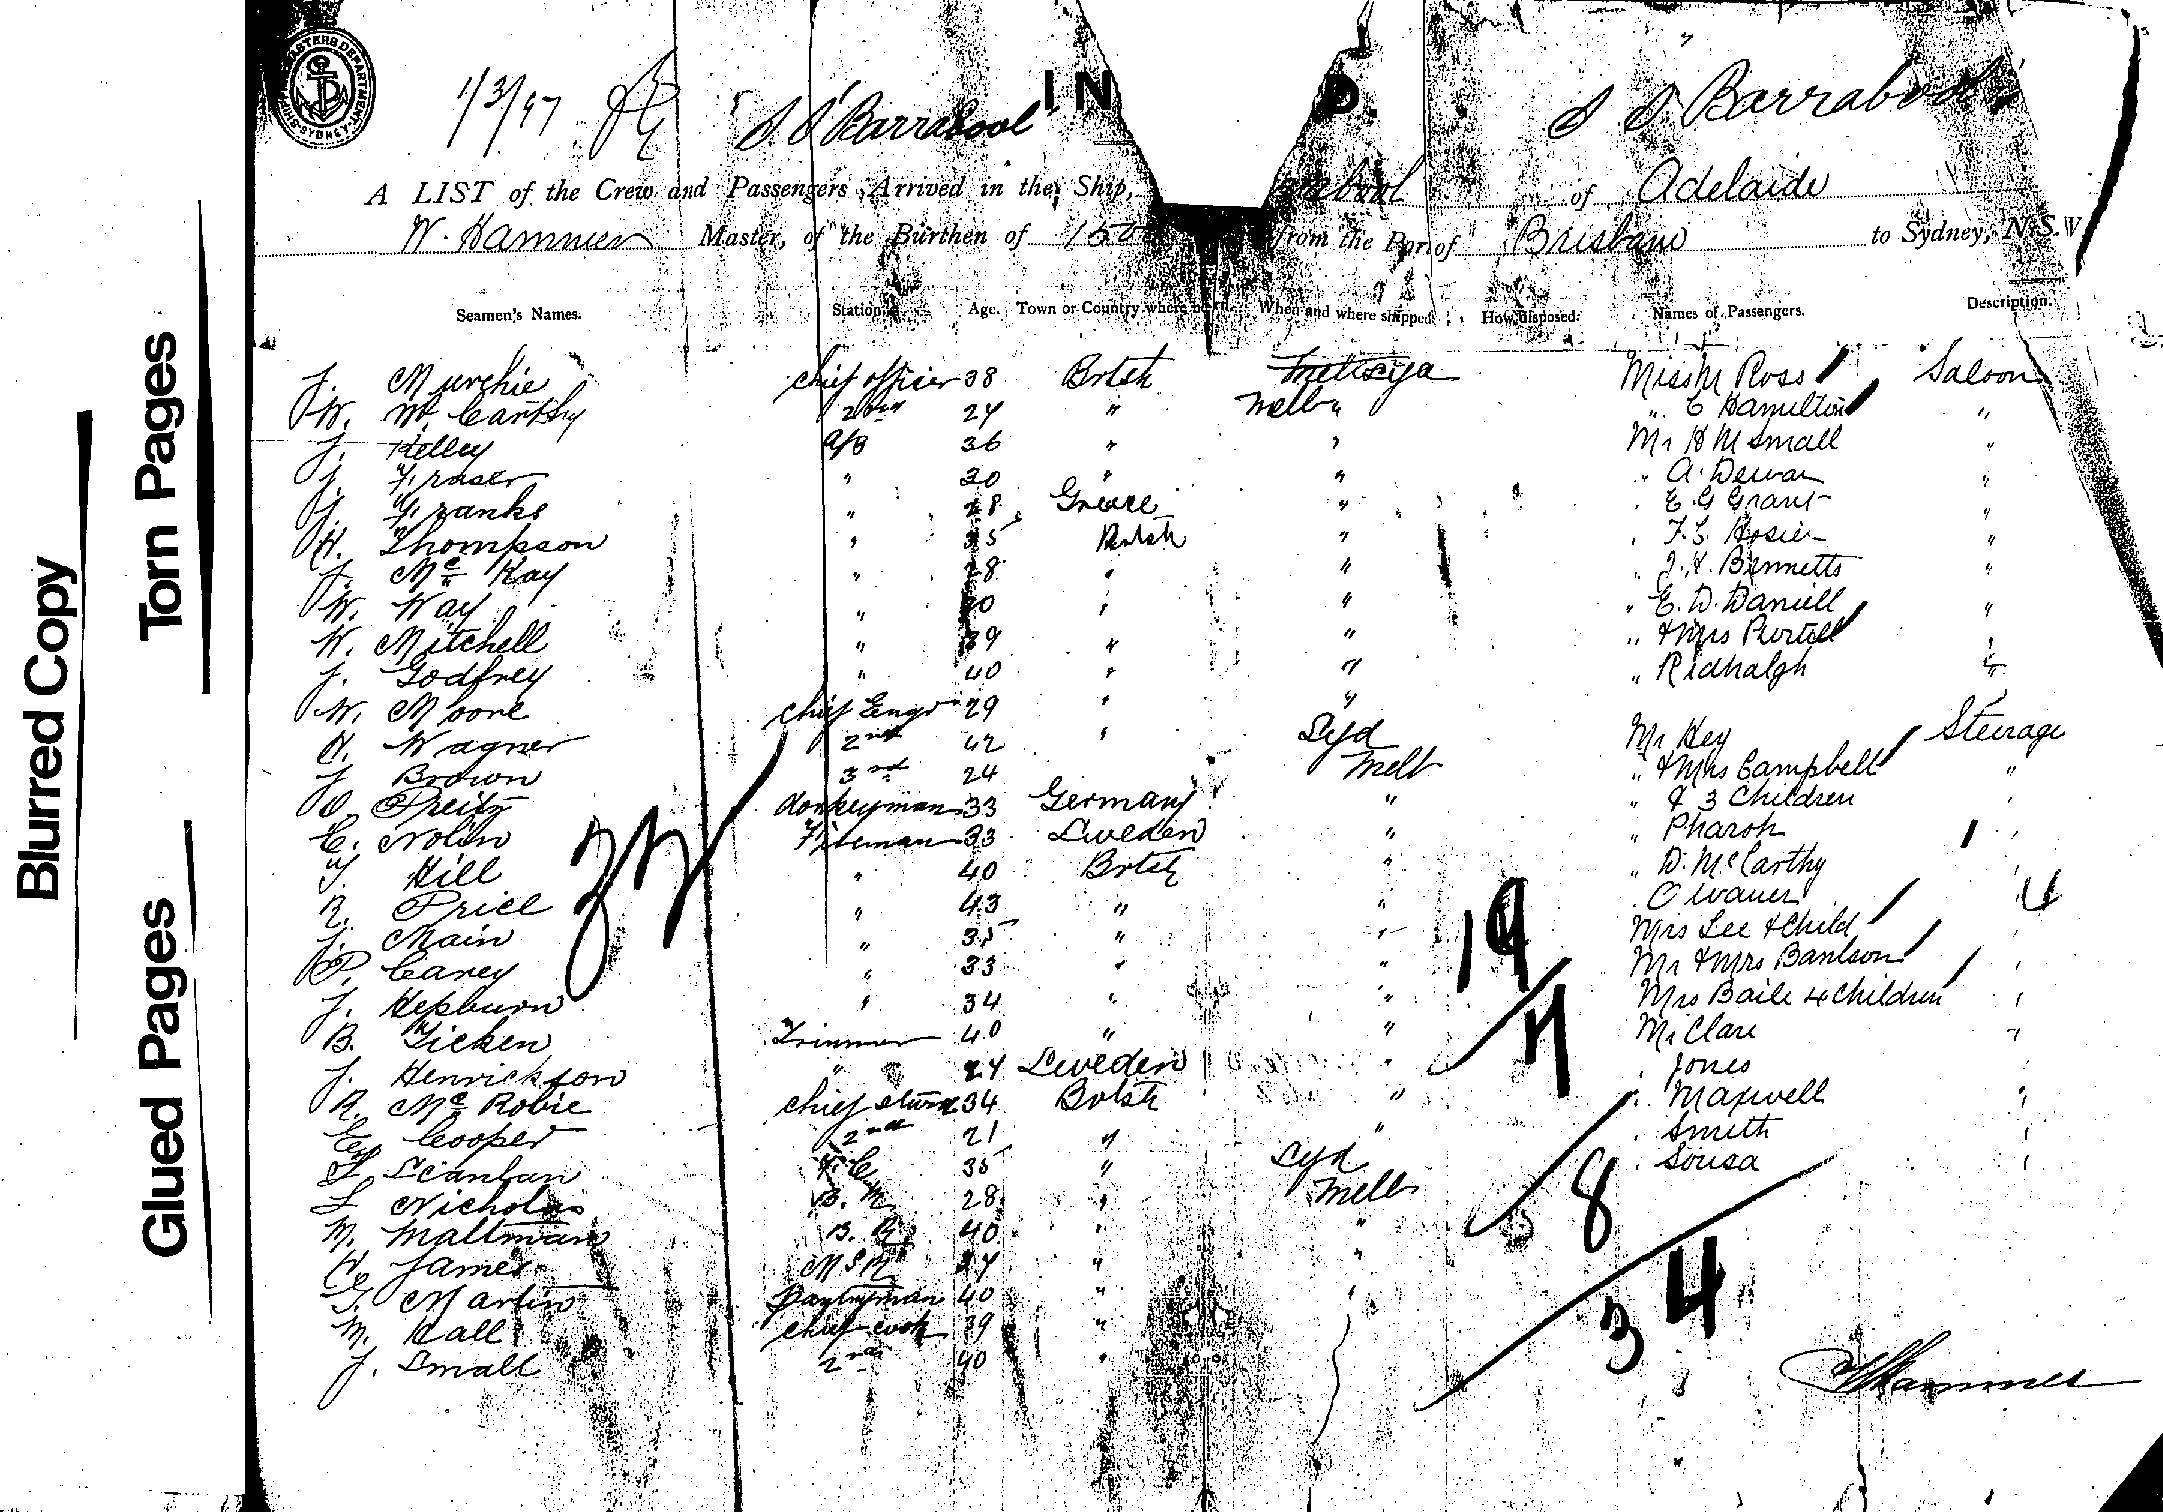 Blurred Copy
Torn Pages
Glued Pages
SYDNEY
1/3/97
S S Barrabool
IN D.
S S Barrabool
A LIST of the Crew and Passengers Arrived in the Ship, of Adelaide
W. Hammer Master, of the Burthen of from the Port of Brisbane to Sydney, N.S.W
Seamen's Names. Station. Age. Town or Country where When and where shipped How disposed. Names of Passengers. Description.
J. Murchie chief officer 38 Brtsh Miss M Ross Saloon
W. Mc Carthy 2nd " 24 " Melb " " C Hamilton "
J. Kelley A/B 36 " " Mr H M Small "
J. Fraser " 30 " " " A Dewar "
J. Franks " 28 Greece " " E G Grant "
H. Thompson " 35 Brtsh " " F. S. Hosier "
J. Mc Kay " 28 " " " J. H. Bennetts "
W. Way " " " " E. D. Daniell "
W. Mitchell " 39 " " " & Mrs Purtell "
J. Godfrey " 40 " " " Ridhalgh "
W. Moore chief Engr 29 " "
H. Wagner 2nd 42 " Syd Mr Key Steerage
J Brown 3rd 24 Melb " & Mrs Campbell "
O. Preitz donkeyman 33 Germany " " & 3 Children "
C. Nolin Fireman 33 Sweden " " Pharoh "
T. Hill " 40 Brtsh " " D. McCarthy "
R. Price " 43 " " 4
J. Main " 35 " " Mrs Lee & Child "
P. Carey " 33 " " Mr & Mrs Bantson "
J. Hepburn " 34 " " Mrs Baile 4 Children "
B. Ticken Trimmer 40 " " Mr Clare "
J. Henrickson " 24 Sweden " " Jones
R. Mc Robie chief stwd 34 Brtsh " " Maxwell "
E. Cooper 2nd 21 " " " Smith "
S Scanlan F. C 35 " Syd " Sousa "
S Nicholas 28 " Melb
M. Maltman 40 " "
C. James " "
T. Martin pantryman 40 " "
M. Hall chief cook 39 "
J. Small 2nd 40 "
19
8
34
W Hammer